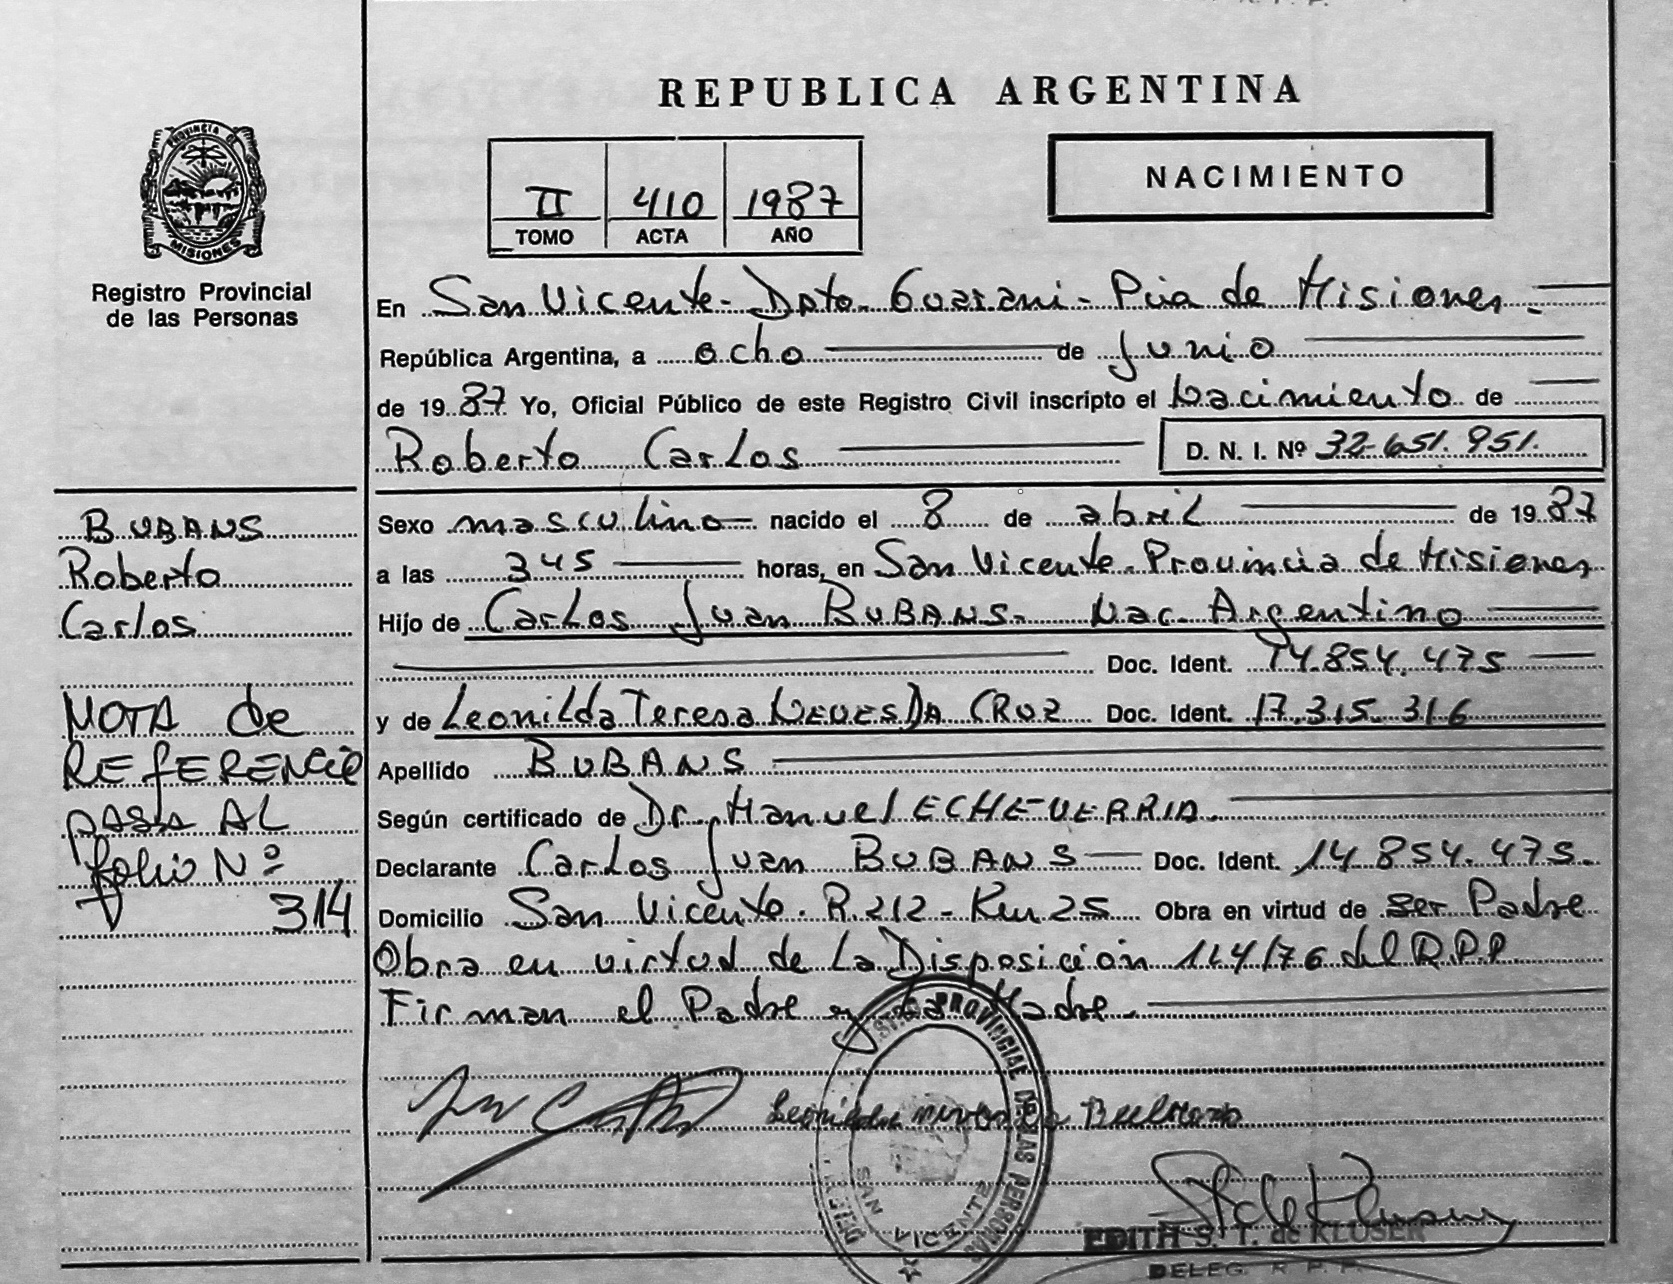 REPUBLICA ARGENTINA
PROVINCIA DE
MISIONES
Registro Provincial
de las Personas
II 410 1987
TOMO ACTA AÑO
NACIMIENTO
En San Vicente - Dpto. Guarani - Pcia de Misiones.-
República Argentina, a ocho de Junio
de 1987 Yo, Oficial Público de este Registro Civil inscripto el Nacimiento de
Roberto Carlos D. N. I. Nº 32-651.951.
BUBANS
Roberto
Carlos
Sexo masculino nacido el 8 de abril de 1987
a las 345 horas, en San Vicente. Provincia de Misiones
Hijo de Carlos Juan BUBANS- Nac. Argentino
Doc. Ident. 14.854.475
y de Leonilda Teresa NEVES DA CRUZ Doc. Ident. 17.315.316
Apellido BUBANS
Según certificado de Dr. Manuel ECHEVERRIA.
Declarante Carlos Juan BUBANS Doc. Ident. 14.854.475.
Domicilio San Vicente. R.212 - Km 25 Obra en virtud de ser Padre
Obra en virtud de la Disposición 114/76 del R.P.P
Firman el Padre y la Madre.
NOTA de
REFERENCIA
PASA AL
folio Nº
314
PROVINCIAL DE LAS PERSONAS
SAN VICENTE
EDITH S. T. de KLUSER
DELEG. R. P. P.